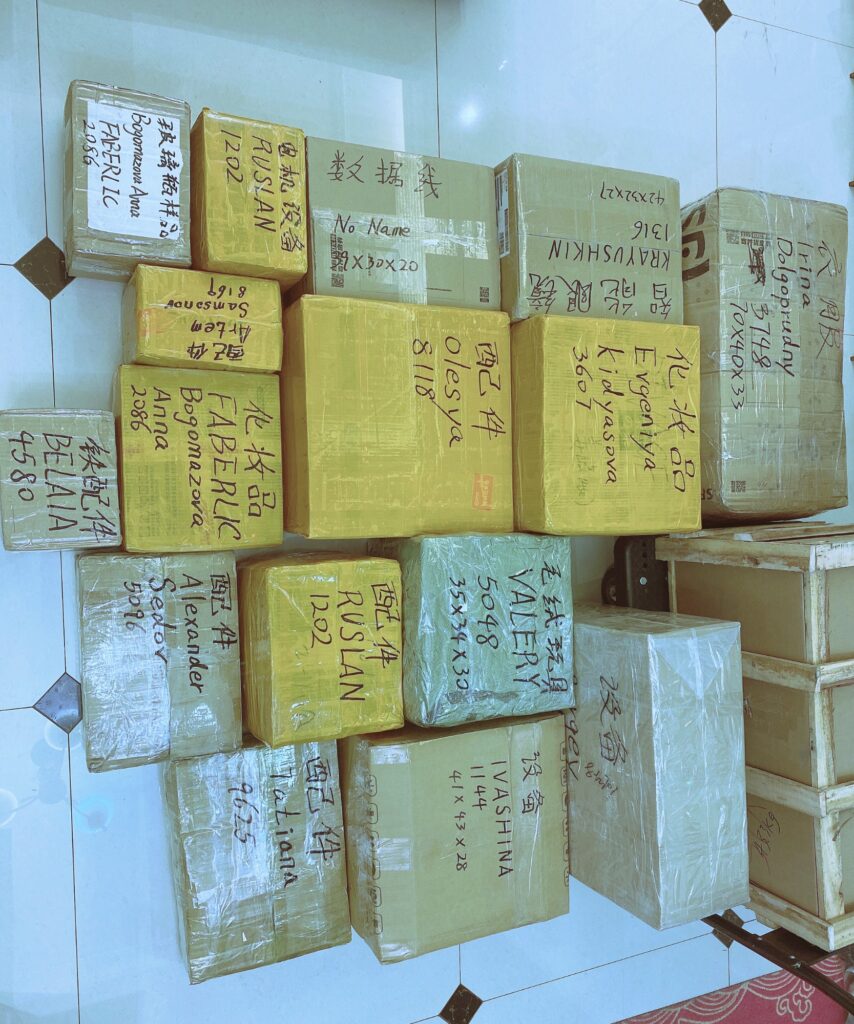 玻璃瓶样品
Bogomazova Anna
FABERLIC
2086
电机设备
RUSLAN
1202
数据线
No Name
39X30X20
智能眼镜
KRAYUSHKIN
1316
42X32X27
衣服
Irina
Dolgoprudny
3748
70X40X33
配件
Artem
Samsonov
8169
配件
Olesya
8118
化妆品
Evgeniya
Kidyasova
3607
化妆品
FABERLIC
Bogomazova
Anna
2086
铁配件
BELAIA
4580
配件
Alexander
Sedov
5096
配件
RUSLAN
1202
毛绒玩具
VALERY
5048
35X34X30
设备
配件
Tatiana
9625
设备
IVASHINA
1144
41X43X28